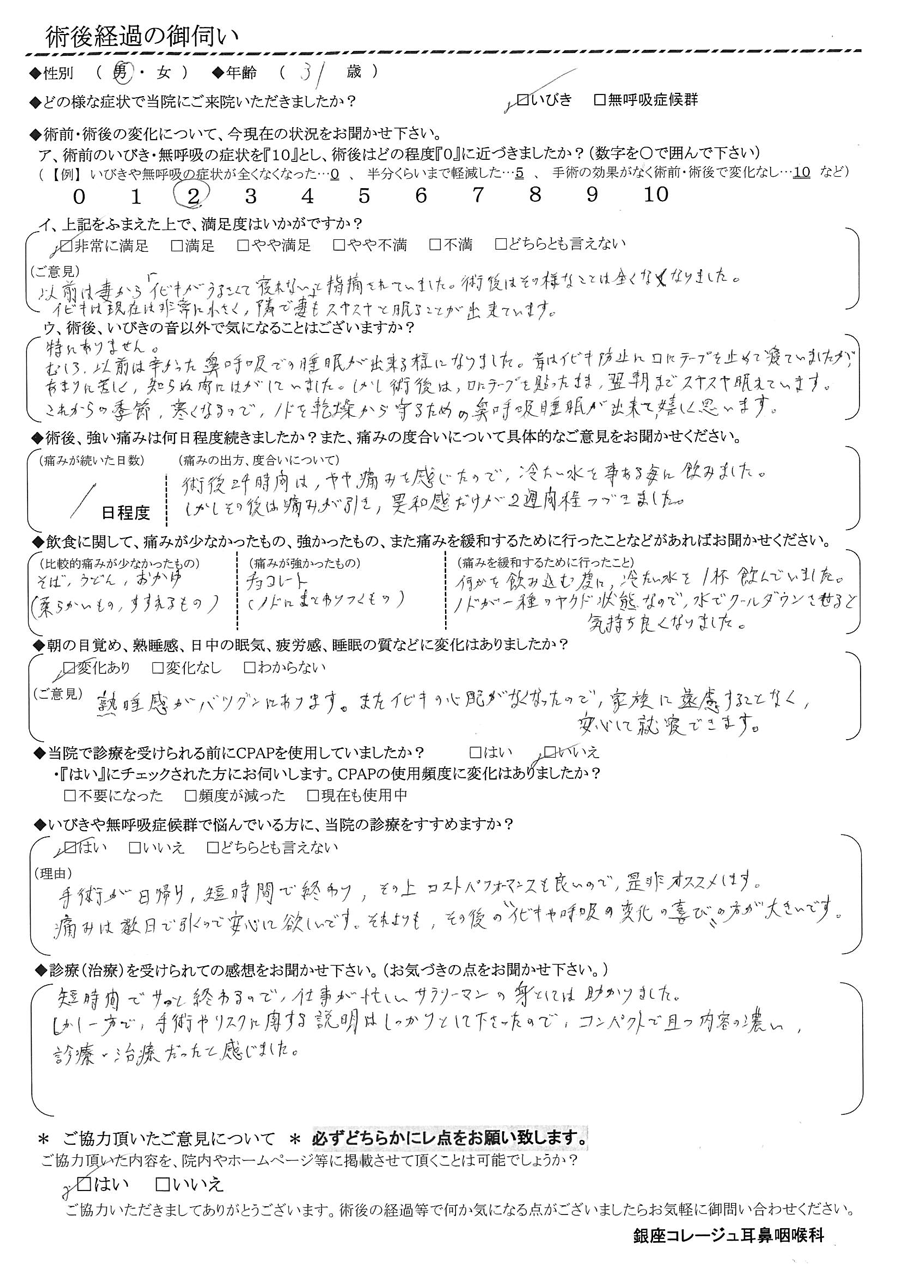 術後経過の御伺い
◆性別 （ 男 ・ 女 ） ◆年齢 （ 31 歳 ）
◆どの様な症状で当院にご来院いただきましたか？ □いびき □無呼吸症候群
◆術前・術後の変化について、今現在の状況をお聞かせ下さい。
ア、術前のいびき・無呼吸の症状を『10』とし、術後はどの程度『0』に近づきましたか？（数字を〇で囲んで下さい）
（【例】 いびきや無呼吸の症状が全くなくなった…0 、 半分くらいまで軽減した…5 、 手術の効果がなく術前・術後で変化なし…10 など）
0 1 2 3 4 5 6 7 8 9 10
イ、上記をふまえた上で、満足度はいかがですか？
□非常に満足 □満足 □やや満足 □やや不満 □不満 □どちらとも言えない
（ご意見）
以前は妻から「イビキがうるさくて寝れない」と指摘されていました。術後はその様なことは全くなくなりました。
イビキは現在は非常に小さく，隣で妻もスヤスヤと眠ることが出来ています。
ウ、術後、いびきの音以外で気になることはございますか？
特にありません。
むしろ、以前は辛かった鼻呼吸での睡眠が出来る様になりました。昔はイビキ防止に口にテープを止めて寝ていましたが、
あまりに苦しく，知らぬ内にはがしていました。しかし術後は，口にテープを貼ったまま，翌朝までスヤスヤ眠れています。
これからの季節，寒くなるので，ノドを乾燥から守るための鼻呼吸睡眠が出来て嬉しく思います。
◆術後、強い痛みは何日程度続きましたか？また、痛みの度合いについて具体的なご意見をお聞かせください。
（痛みが続いた日数） （痛みの出方、度合いについて）
術後24時間は，やや痛みを感じたので，冷たい水を事ある毎に飲みました。
1 日程度 しかしその後は痛みが引き，異和感だけが2週間程つづきました。
◆飲食に関して、痛みが少なかったもの、強かったもの、また痛みを緩和するために行ったことなどがあればお聞かせください。
（比較的痛みが少なかったもの） （痛みが強かったもの） （痛みを緩和するために行ったこと）
そば，うどん，おかゆ チョコレート 何かを飲み込む度に，冷たい水を1杯飲んでいました。
（柔らかいもの，すすれるもの） （ノドにまとわりつくもの） ノドが一種のヤケド状態なので，水でクールダウンさせると
気持ち良くなりました。
◆朝の目覚め、熟睡感、日中の眠気、疲労感、睡眠の質などに変化はありましたか？
□変化あり □変化なし □わからない
（ご意見） 熟睡感がバツグンにあります。またイビキの心配がなくなったので，家族に遠慮することなく，
安心して就寝できます。
◆当院で診療を受けられる前にCPAPを使用していましたか？ □はい □いいえ
・『はい』にチェックされた方にお伺いします。CPAPの使用頻度に変化はありましたか？
□不要になった □頻度が減った □現在も使用中
◆いびきや無呼吸症候群で悩んでいる方に、当院の診療をすすめますか？
□はい □いいえ □どちらとも言えない
（理由）
手術が日帰り，短時間で終わり，その上コストパフォーマンスも良いので，是非オススメします。
痛みは数日で引くので安心して欲しいです。それよりも，その後の“イビキや呼吸の変化の喜び”の方が大きいです。
◆診療（治療）を受けられての感想をお聞かせ下さい。（お気づきの点をお聞かせ下さい。）
短時間でサッと終わるので，仕事が忙しいサラリーマンの身としては助かりました。
しかし一方で，手術やリスクに関する説明はしっかりとして下さったので，コンパクトで且つ内容の濃い，
診療・治療だったと感じました。
＊ ご協力頂いたご意見について ＊ 必ずどちらかにレ点をお願い致します。
ご協力頂いた内容を、院内やホームページ等に掲載させて頂くことは可能でしょうか？
□はい □いいえ
ご協力いただきましてありがとうございます。術後の経過等で何か気になる点がございましたらお気軽に御問い合わせください。
銀座コレージュ耳鼻咽喉科